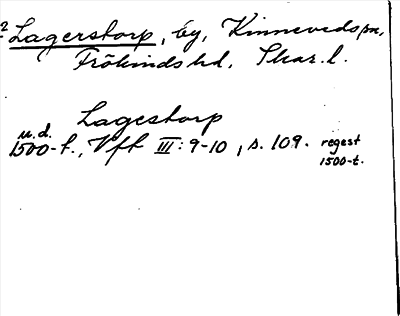 2 Lagerstorp, by, Kinneveds sn,
Frökinds hd, Skar. l.
Lagestorp
u.d.
1500-t., Vft III: 9-10, s. 109. regest
1500-t.